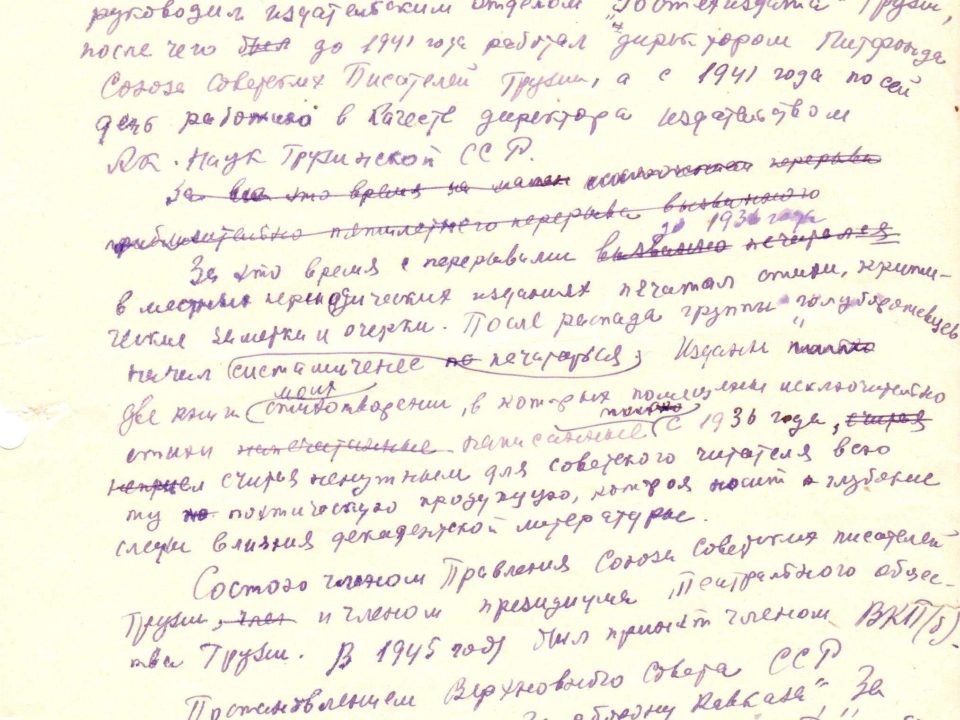 руководил издательским отделом "Гостехиздата" Грузии,
после чего был до 1941 года работал директором Литфонда
Союза Советских Писателей Грузии, а с 1941 года по сей
день работаю в качестве директора издательством
Ак. Наук Грузинской ССР.
За все это время за малым исключением перерыва
приблизительно пятилетнего перерыва вызванного
до 1936 года
За это время с перерывами вызванно печатался
в местных периодических изданиях печатал стихи, крити-
ческие заметки и очерки. После распада группы "голубороговцев"
начал систематичнее по печататься; Изданы только
две книги моих стихотворении, в которых помещены исключительно
стихи напечатанные написанные только с 1936 года, считая
считая ненужным для советского читателя всю
ту по поэтическую продукцию, которая носит глубокие
следы влияния декадентской литературы.
Состою членом Правления Союза Советских писателей
Грузии, член и членом президиума Театрального общес-
тва Грузии. В 1945 году был принят членом ВКП(б).
Постановлением Верховного Совета ССР
За оборону Кавказа" За